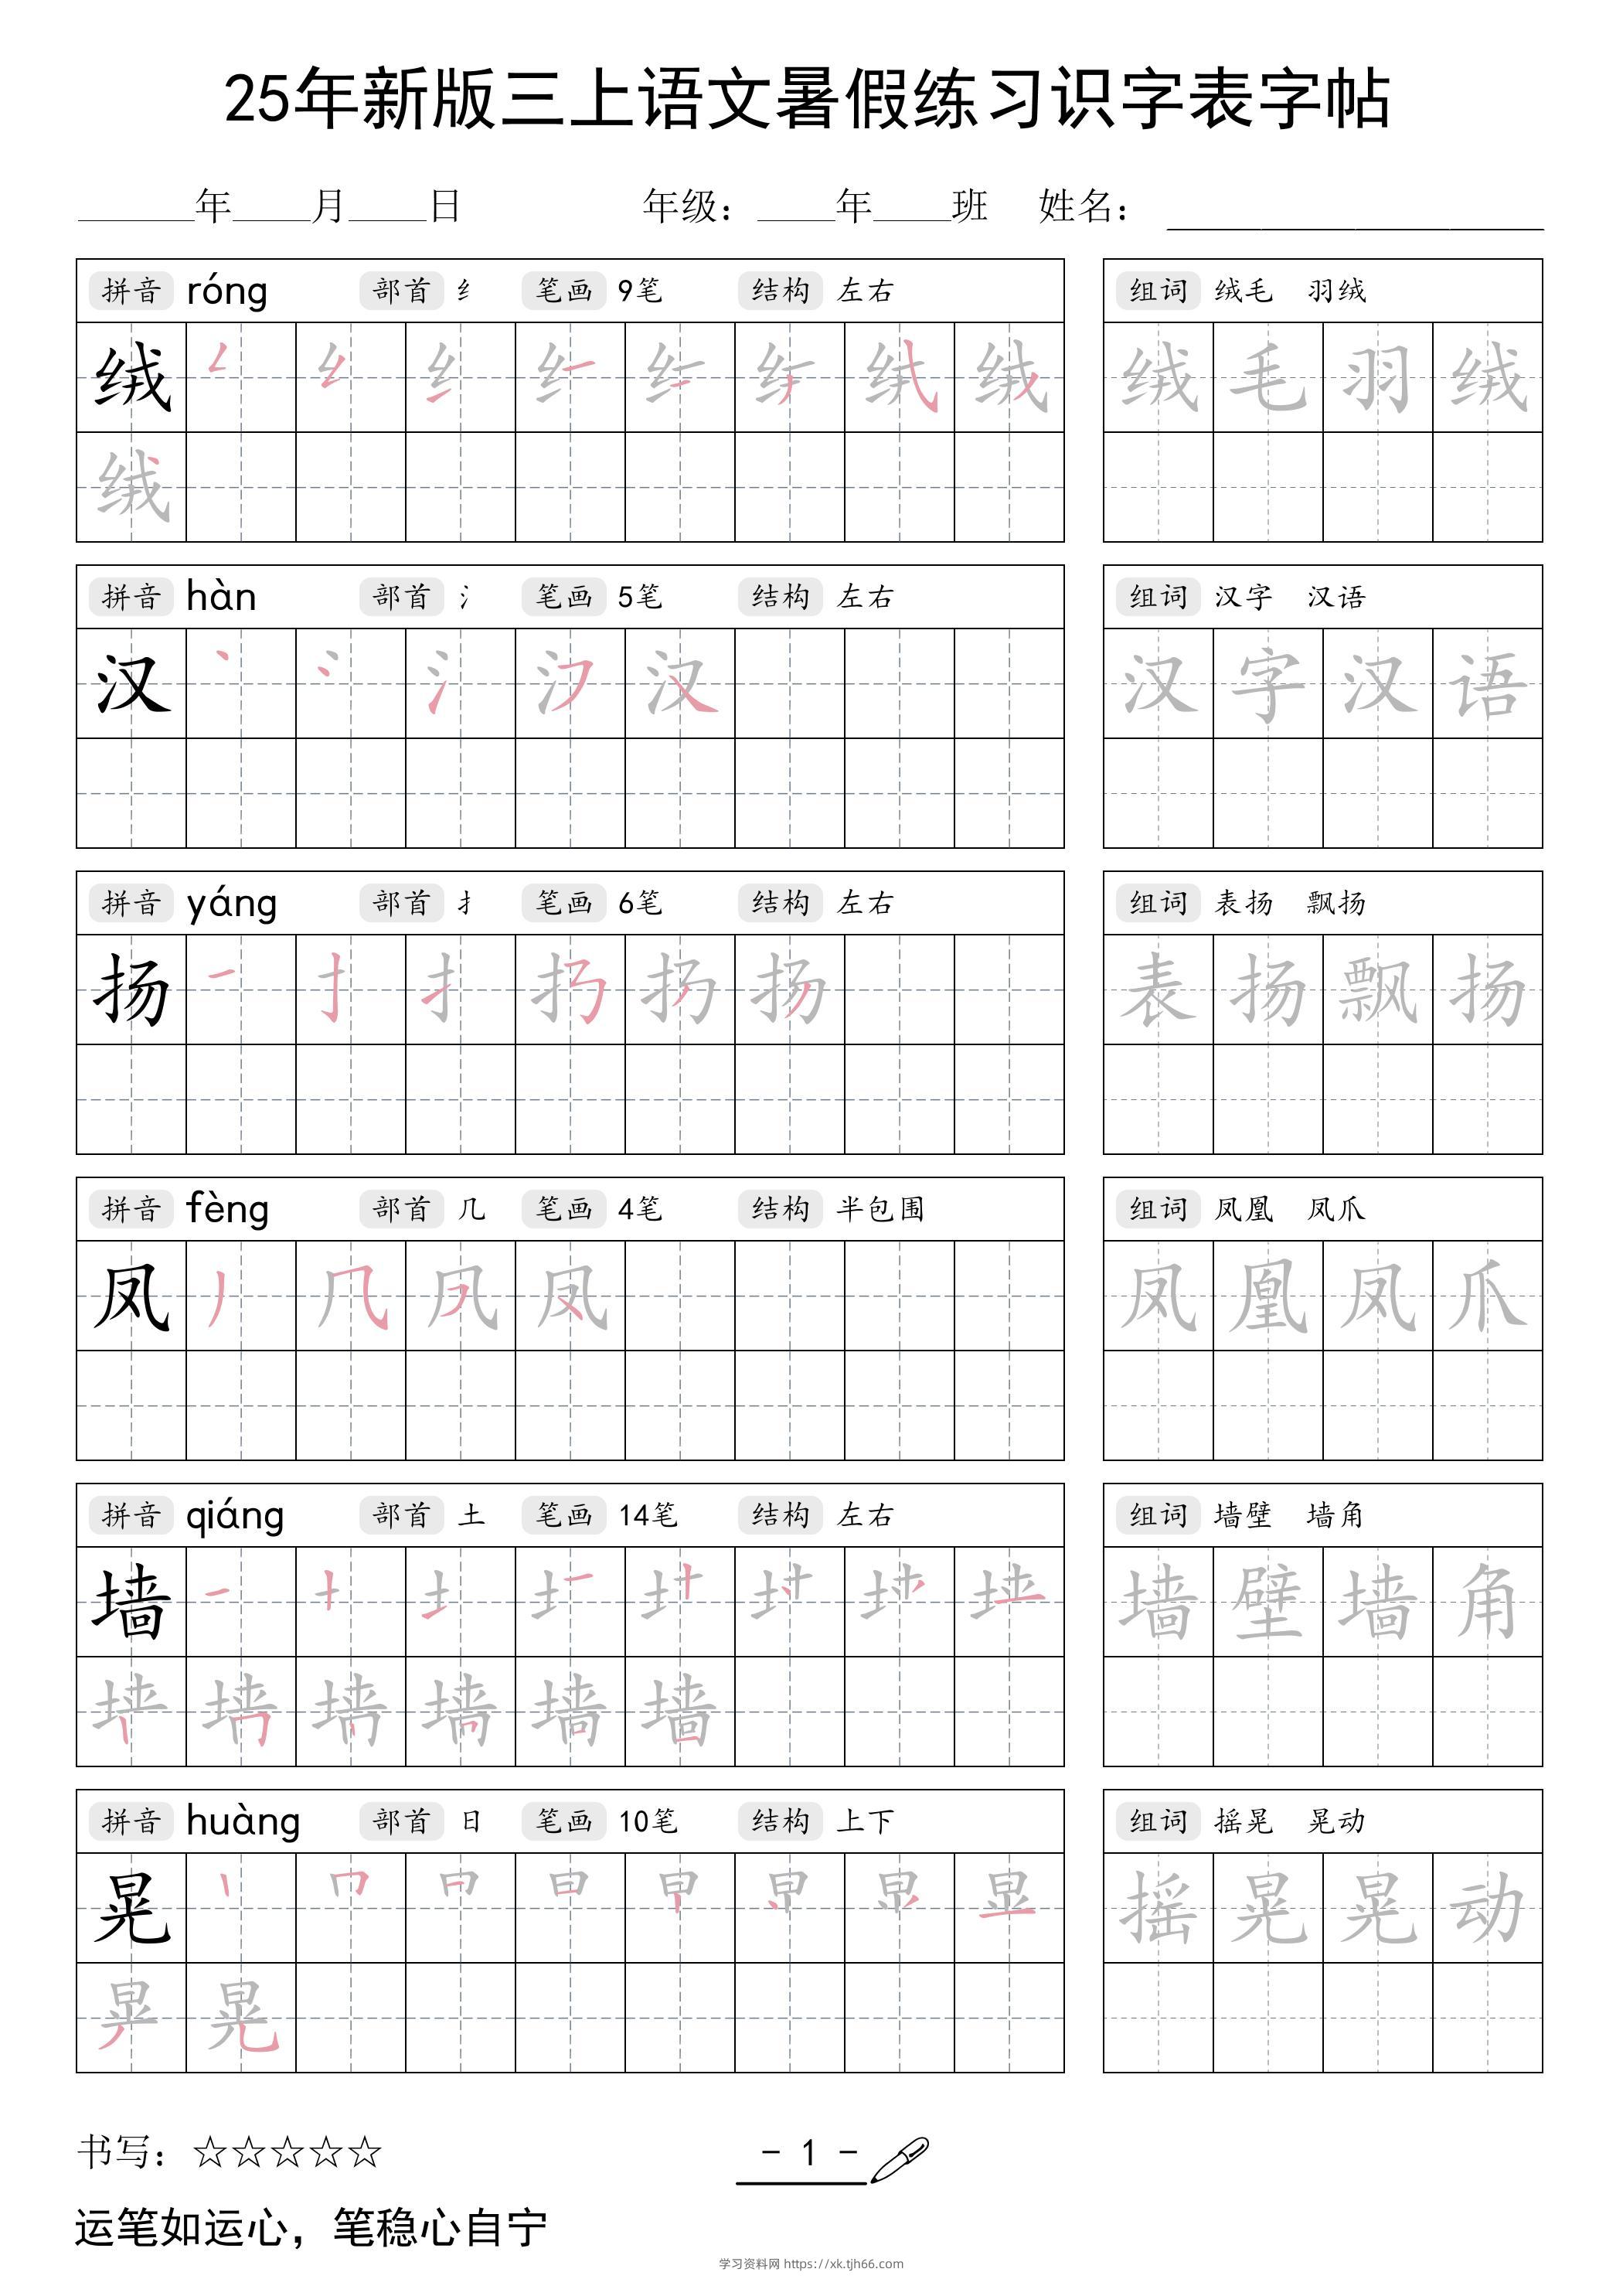 25年新版三上语文暑假练习识字表字帖
______年____月____日 年级：____年____班 姓名：
拼音 róng 部首 纟 笔画 9笔 结构 左右 组词 绒毛 羽绒
绒 绒 毛 羽 绒
绒
拼音 hàn 部首 氵 笔画 5笔 结构 左右 组词 汉字 汉语
汉 汉 汉 字 汉 语
拼音 yáng 部首 扌 笔画 6笔 结构 左右 组词 表扬 飘扬
扬 扬 表 扬 飘 扬
拼音 fèng 部首 几 笔画 4笔 结构 半包围 组词 凤凰 凤爪
凤 凤 凤 凰 凤 爪
拼音 qiáng 部首 土 笔画 14笔 结构 左右 组词 墙壁 墙角
墙 墙 壁 墙 角
墙
拼音 huàng 部首 日 笔画 10笔 结构 上下 组词 摇晃 晃动
晃 摇 晃 晃 动
晃
书写：☆☆☆☆☆ - 1 -
运笔如运心，笔稳心自宁
学习资料网 https://xk.tjh66.com